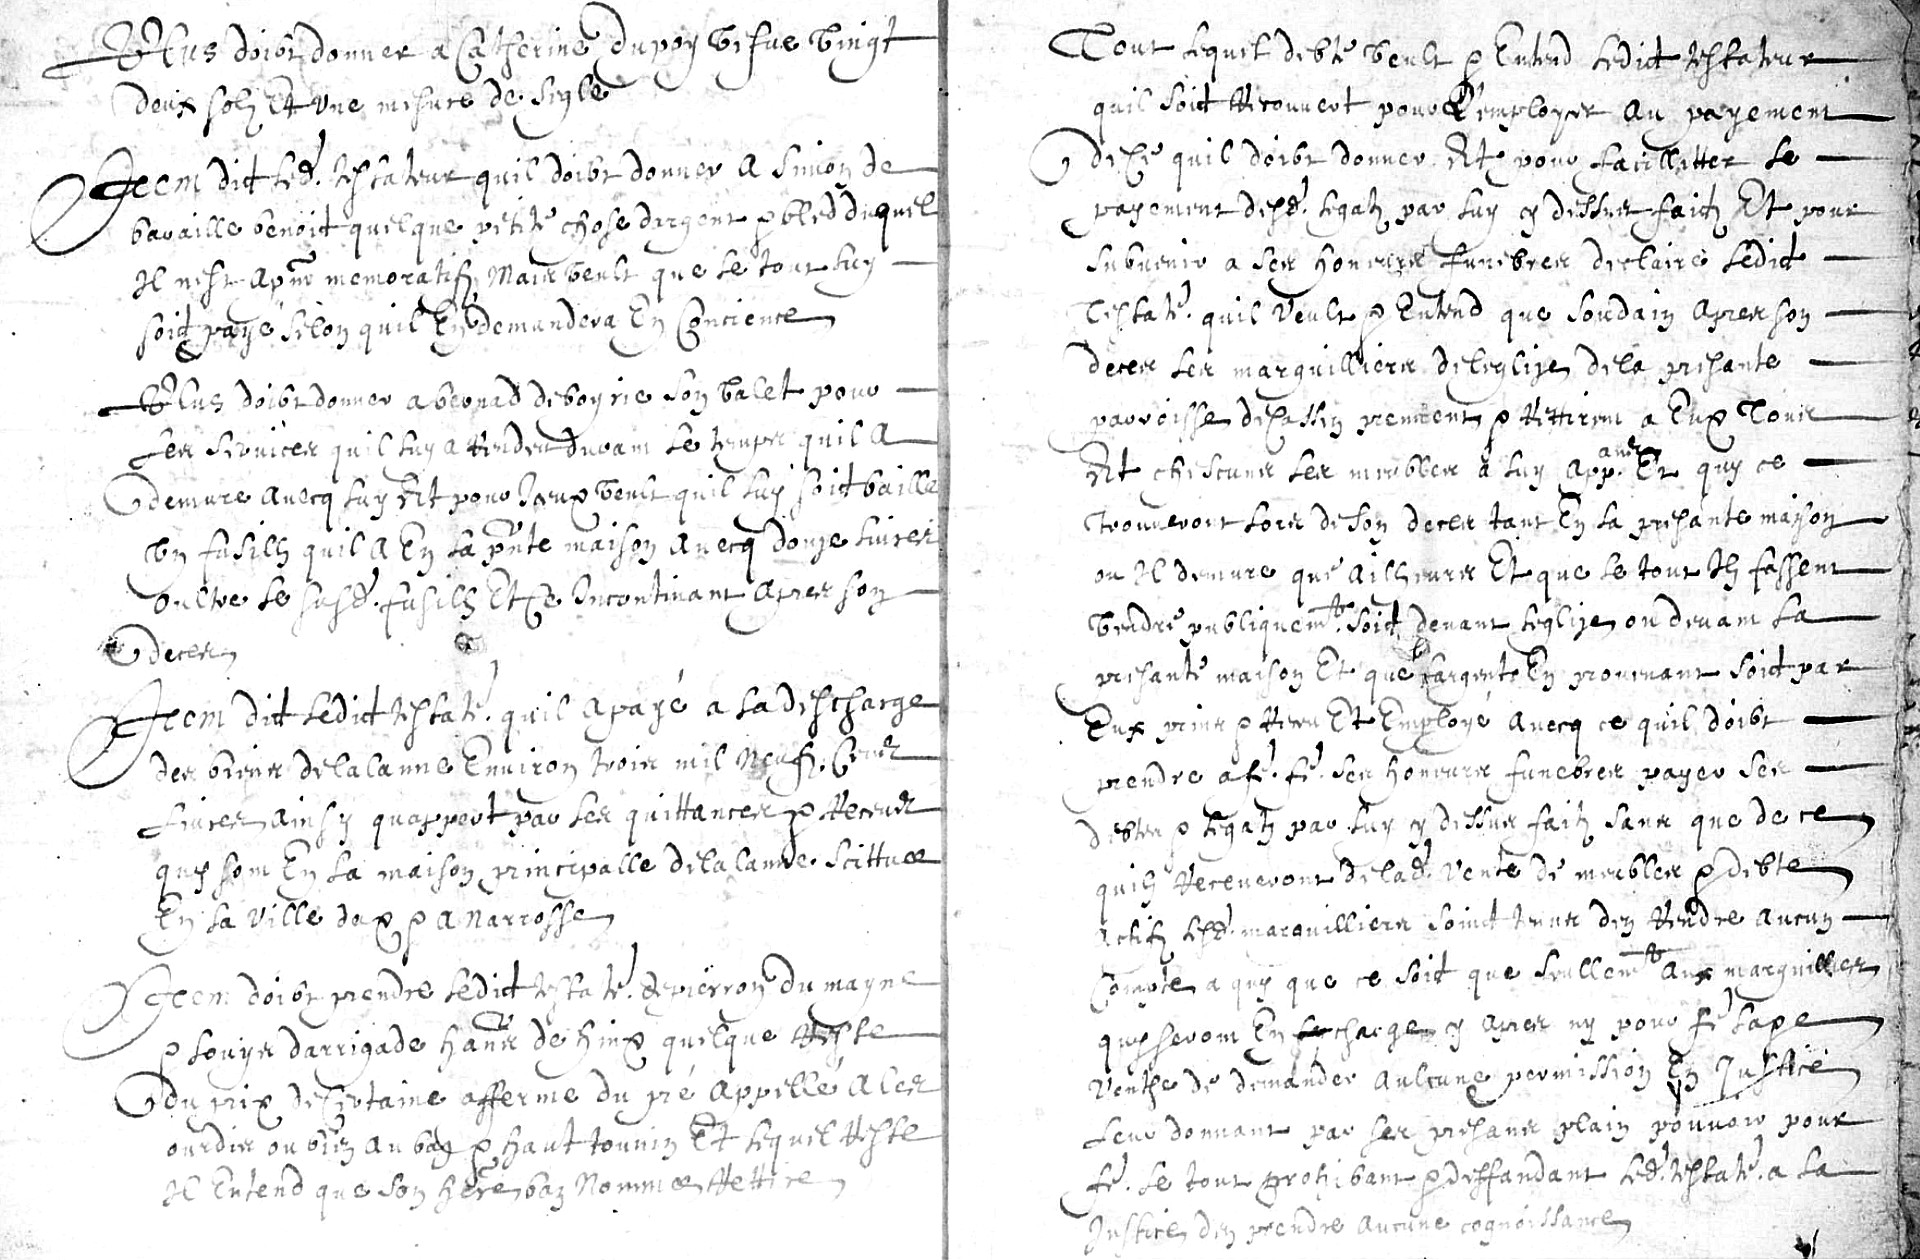 Plus doibt donner a Catherine dupoy vefue vingt
deux solz Et vne mesure de sigle
Item dit led. testateur quil doibt donner a simon de
bauaille benoit quelque petite chose dargent & bled duquel
Il nest apnt memoratif Mais veult que le tout luy
soit payé selon quil En demandera En Concience
Plus doibt donner a bernad deboyrie son valet pour
les seruices quil luy a Rendus durant le temps quil a
demure auecq luy Et pour Iceux veult quil luy soit baille
vn fusilh quil a En la pnte maison auecq douze liures
oultre le susd. fusilh Et ce Incontinant apres son
deces
Item dit ledit testatr. quil a payé a la descharge
des biens delalanne Enuiron trois mil Neuf Cens
Liures ainsy quappert par les quittances & Receus
quy sont En la maison principalle delalanne scittuee
En la ville dax & a Narrosse
Item doibt prendre ledit testatr. de pierron du mayne
& louys darrigade hans de hinx quelque Reste
du prix de certaine afferme du pré appellé a les
ourdis ou bien au bas & haut tounin Et lequel Reste
Il Entend que son here. bas Nommee Rettire
Tout lequel debte veult & Entend ledit testateur
quil soit Recouuert pour Lemployer au payement
de ce quil doibt donner Et pour facillitter le
payement desd. legatz par luy cy dessus faitz Et pour
subuenir a ses honeurs funebres declaire ledit
Testatr. quil veult & Entend que soudain apres son
deces les marguilliers deleglize dela presante
parroisse de cassen prennent & Rettirent a Eux Tous
Et chescuns les meubles a luy app. ans Et quy ce
trouueront lors de son deces tant En la presante maison
ou Il demure que ailheurs Et que le tout Ilz fassent
vendre publiquemt. soit deuant leglize ou deuant la
presante maison Et que largent En prouenant soit par
Eux prins & Receu Et Employé auecq ce quil doibt
prendre a fe. fe. ses honeurs funebres payer ses
debtes & legatz par luy cy dessus faitz sans que de ce
quilz Receueront delad. vente de meubles & debte
actifz lesd. marguilliers soint tenus den Rendre aucun
Compte a quy que ce soit que seullemt aux marguilliers
quy seront En charge cy apres ny pour fe. lape
venthe de demander aulcune permission En Justice
Leur donnant par ses presans plain pouuoir pour
fe. le tout prohibant & deffandant led. testatr. a la
Justice den prendre aucune cognoissance